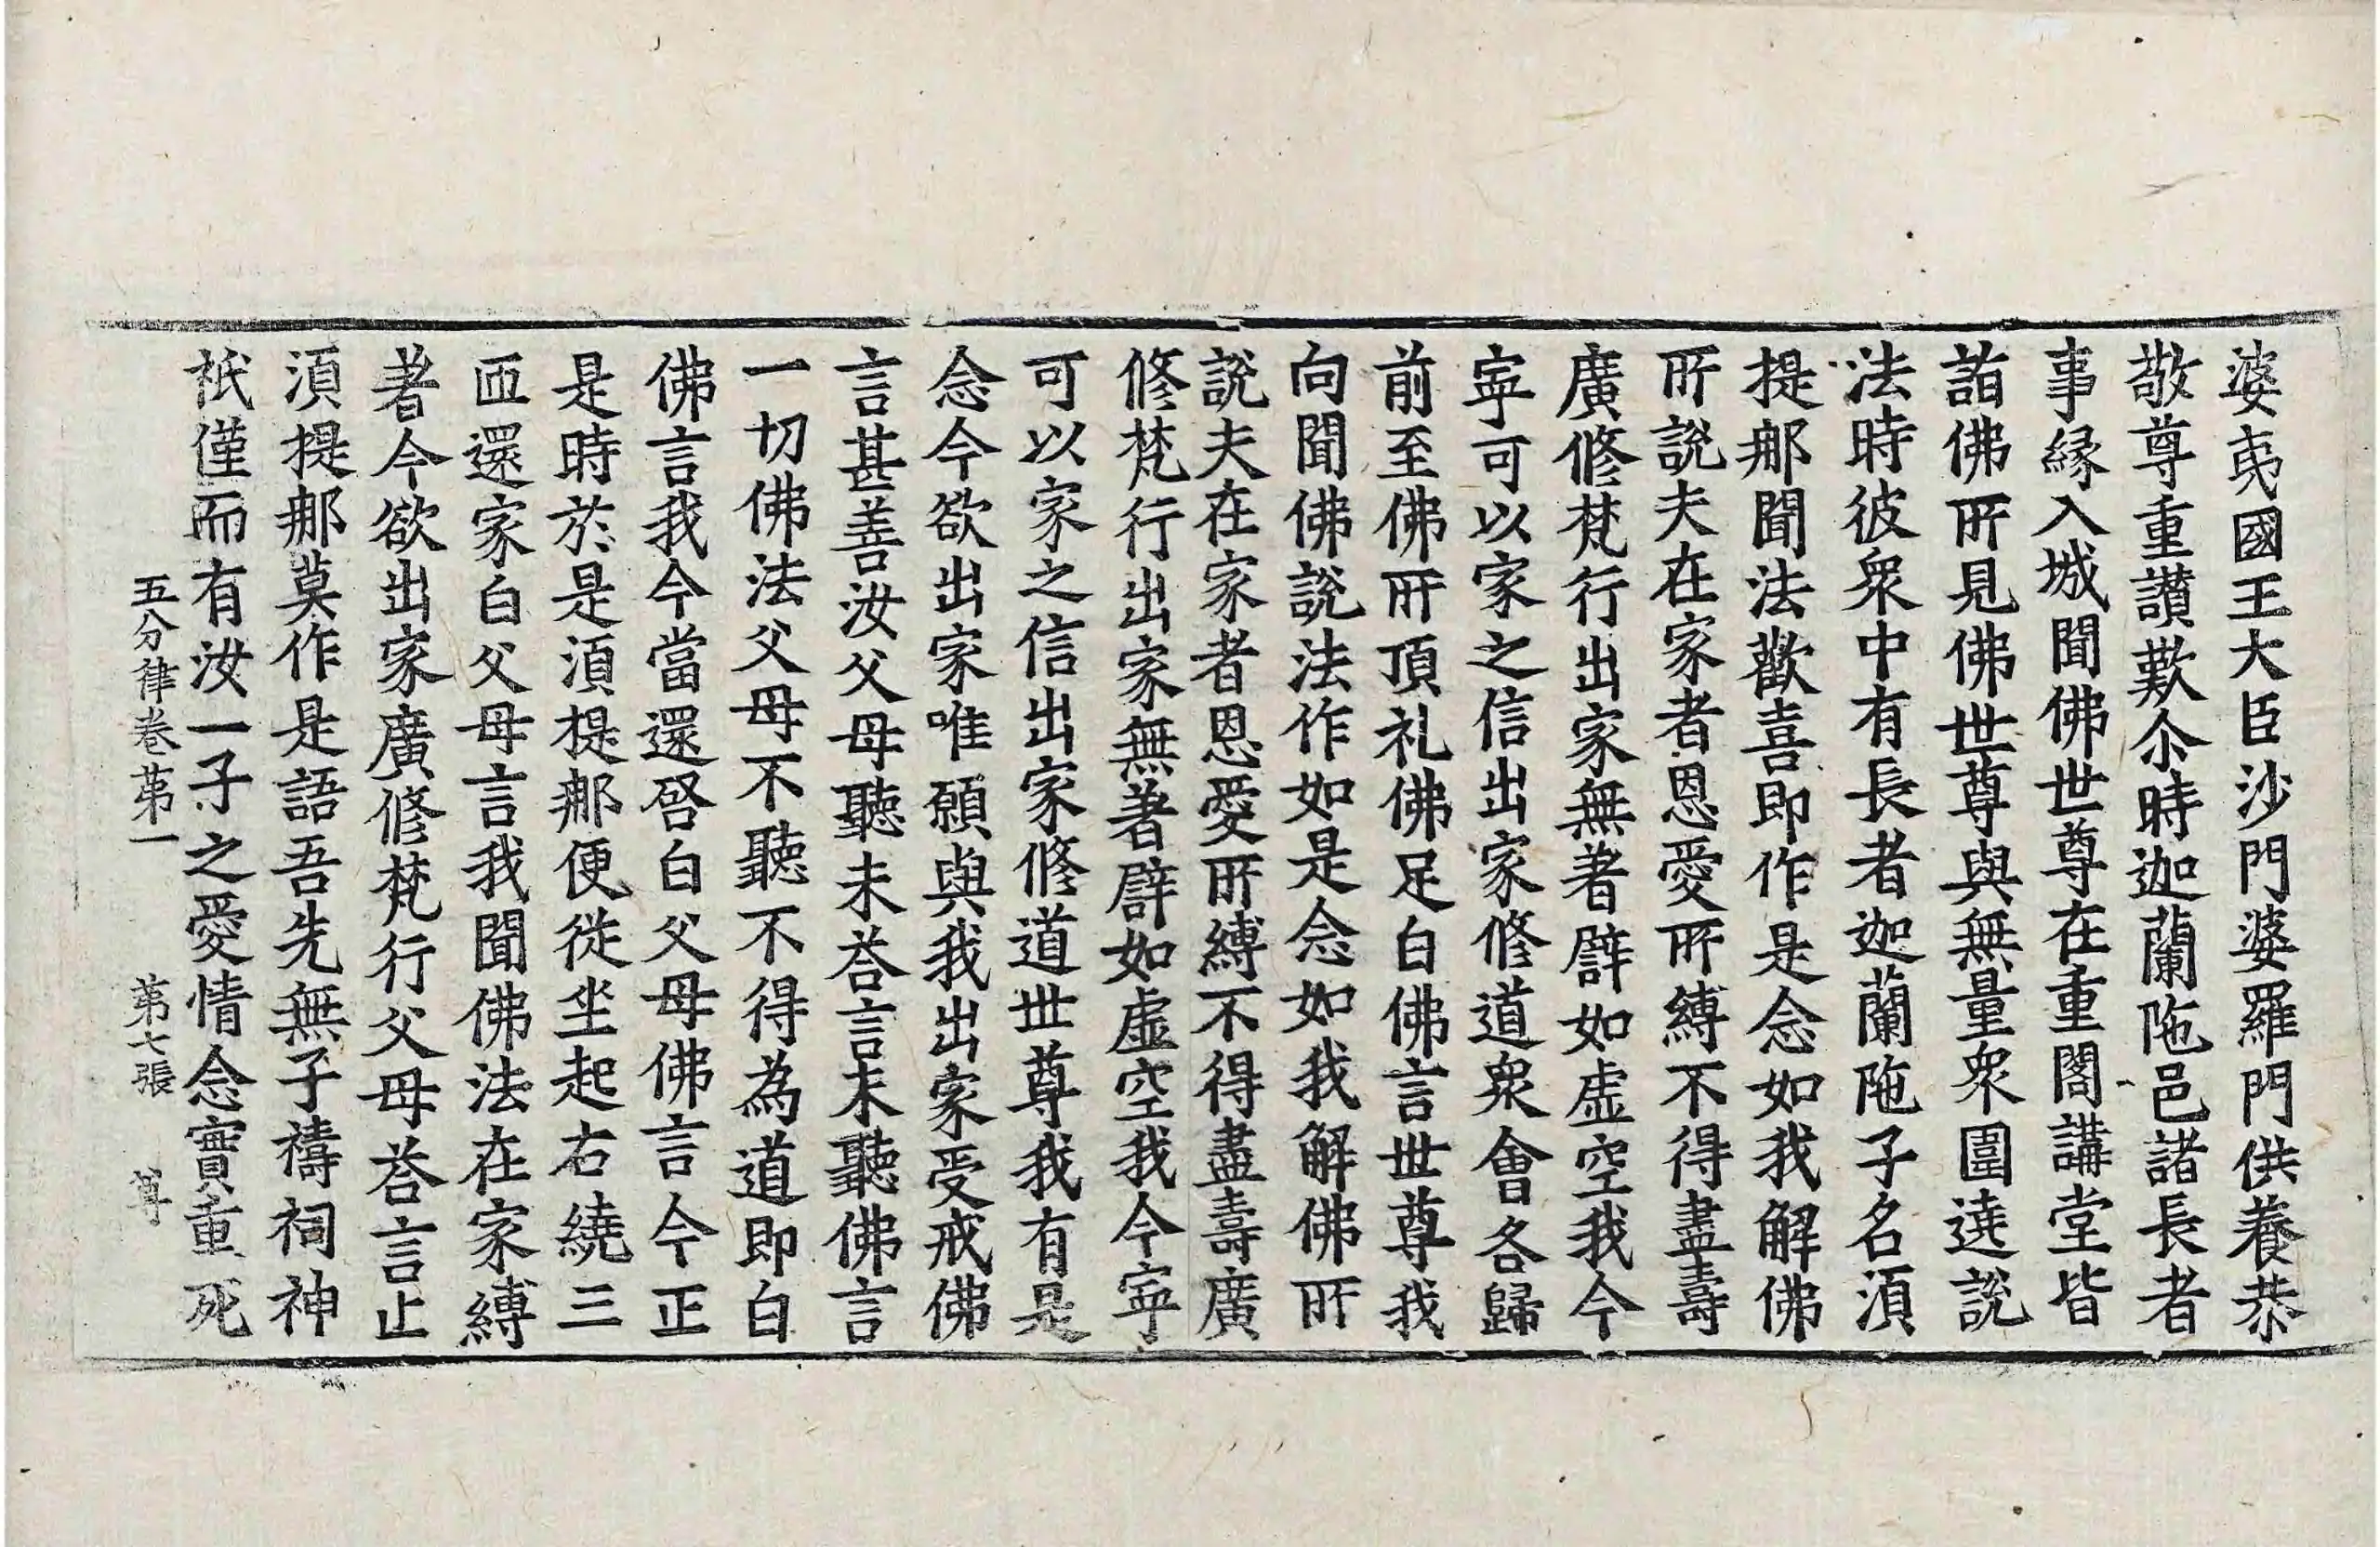 婆夷國王大臣沙門婆羅門供養恭
敬尊重讃歎尒時迦蘭陁邑諸長者
事縁入城聞佛世尊在重閣講堂皆
詣佛所見佛世尊與無量衆圍遶說
法時彼衆中有長者迦蘭陁子名湏
提那聞法歡喜即作是念如我解佛
所說夫在家者恩愛所縛不得盡壽
廣修梵行出家無著譬如虛空我今
寕可以家之信出家修道衆會各歸
前至佛所頂礼佛足白佛言世尊我
向聞佛說法作如是念如我解佛所
說夫在家者恩愛所縛不得盡壽廣
修梵行出家無著譬如虛空我今寕
可以家之信出家修道世尊我有是
念今欲出家唯願與我出家受戒佛
言甚善汝父母聽未荅言未聽佛言
一切佛法父母不聽不得為道即白
佛言我今當還啓白父母佛言今正
是時於是湏提那便從坐起右繞三
匝還家白父母言我聞佛法在家縛
著今欲出家廣修梵行父母荅言止
湏提那莫作是語吾先無子禱祠神
祇僅而有汝一子之愛情念實重死
五分律卷第一　第七張　尊